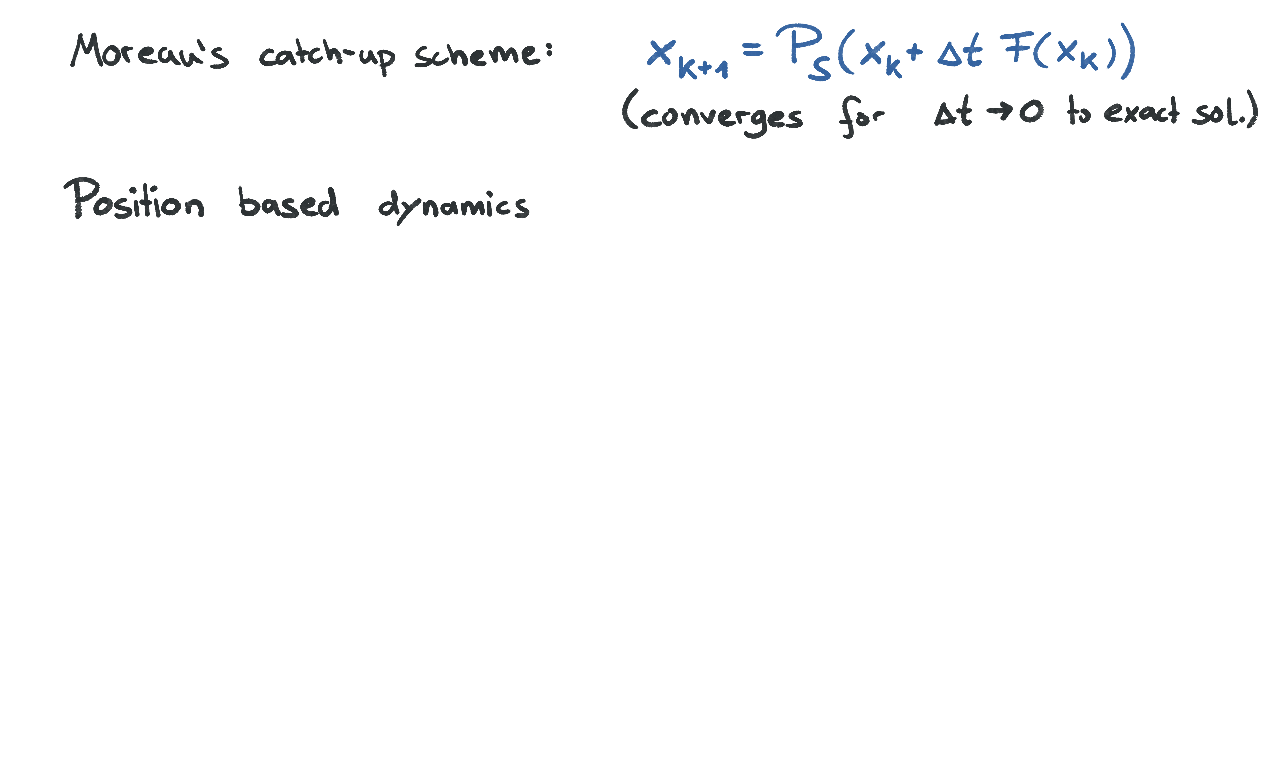 Moreau's catch-up scheme: x_{k+1} = P_S(x_k + Δt F(x_k))
(converges for Δt → 0 to exact sol.)
Position based dynamics